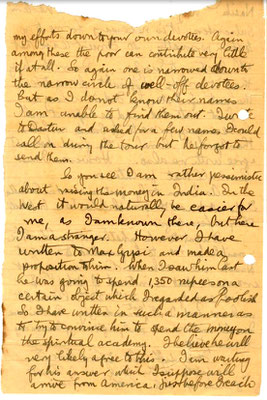 my efforts down to your own devotees. Again
among these the poor can contribute very little
if at all. So again one is narrowed down to
the narrow circle of well-off devotees.
But as I do not know their names
I am unable to find them out. I wrote
to Dastur and asked for a few names I could
call on during the tour but he forgot to
send them.
So you see I am rather pessimistic
about raising the money in India. In the
West it would naturally, be easier for
me, as I am known there, but here
I am a stranger. However I have
written to Max Gysi and made a
proposition to him. When I saw him last
he was going to spend 1,350 rupees on a
certain object which I regarded as foolish
So I have written in such a manner as
to try to convince him to spend the money on
the spiritual academy. I believe he will
very likely agree to this. I am waiting
for his answer which I suppose will
arrive from America, just before I reach